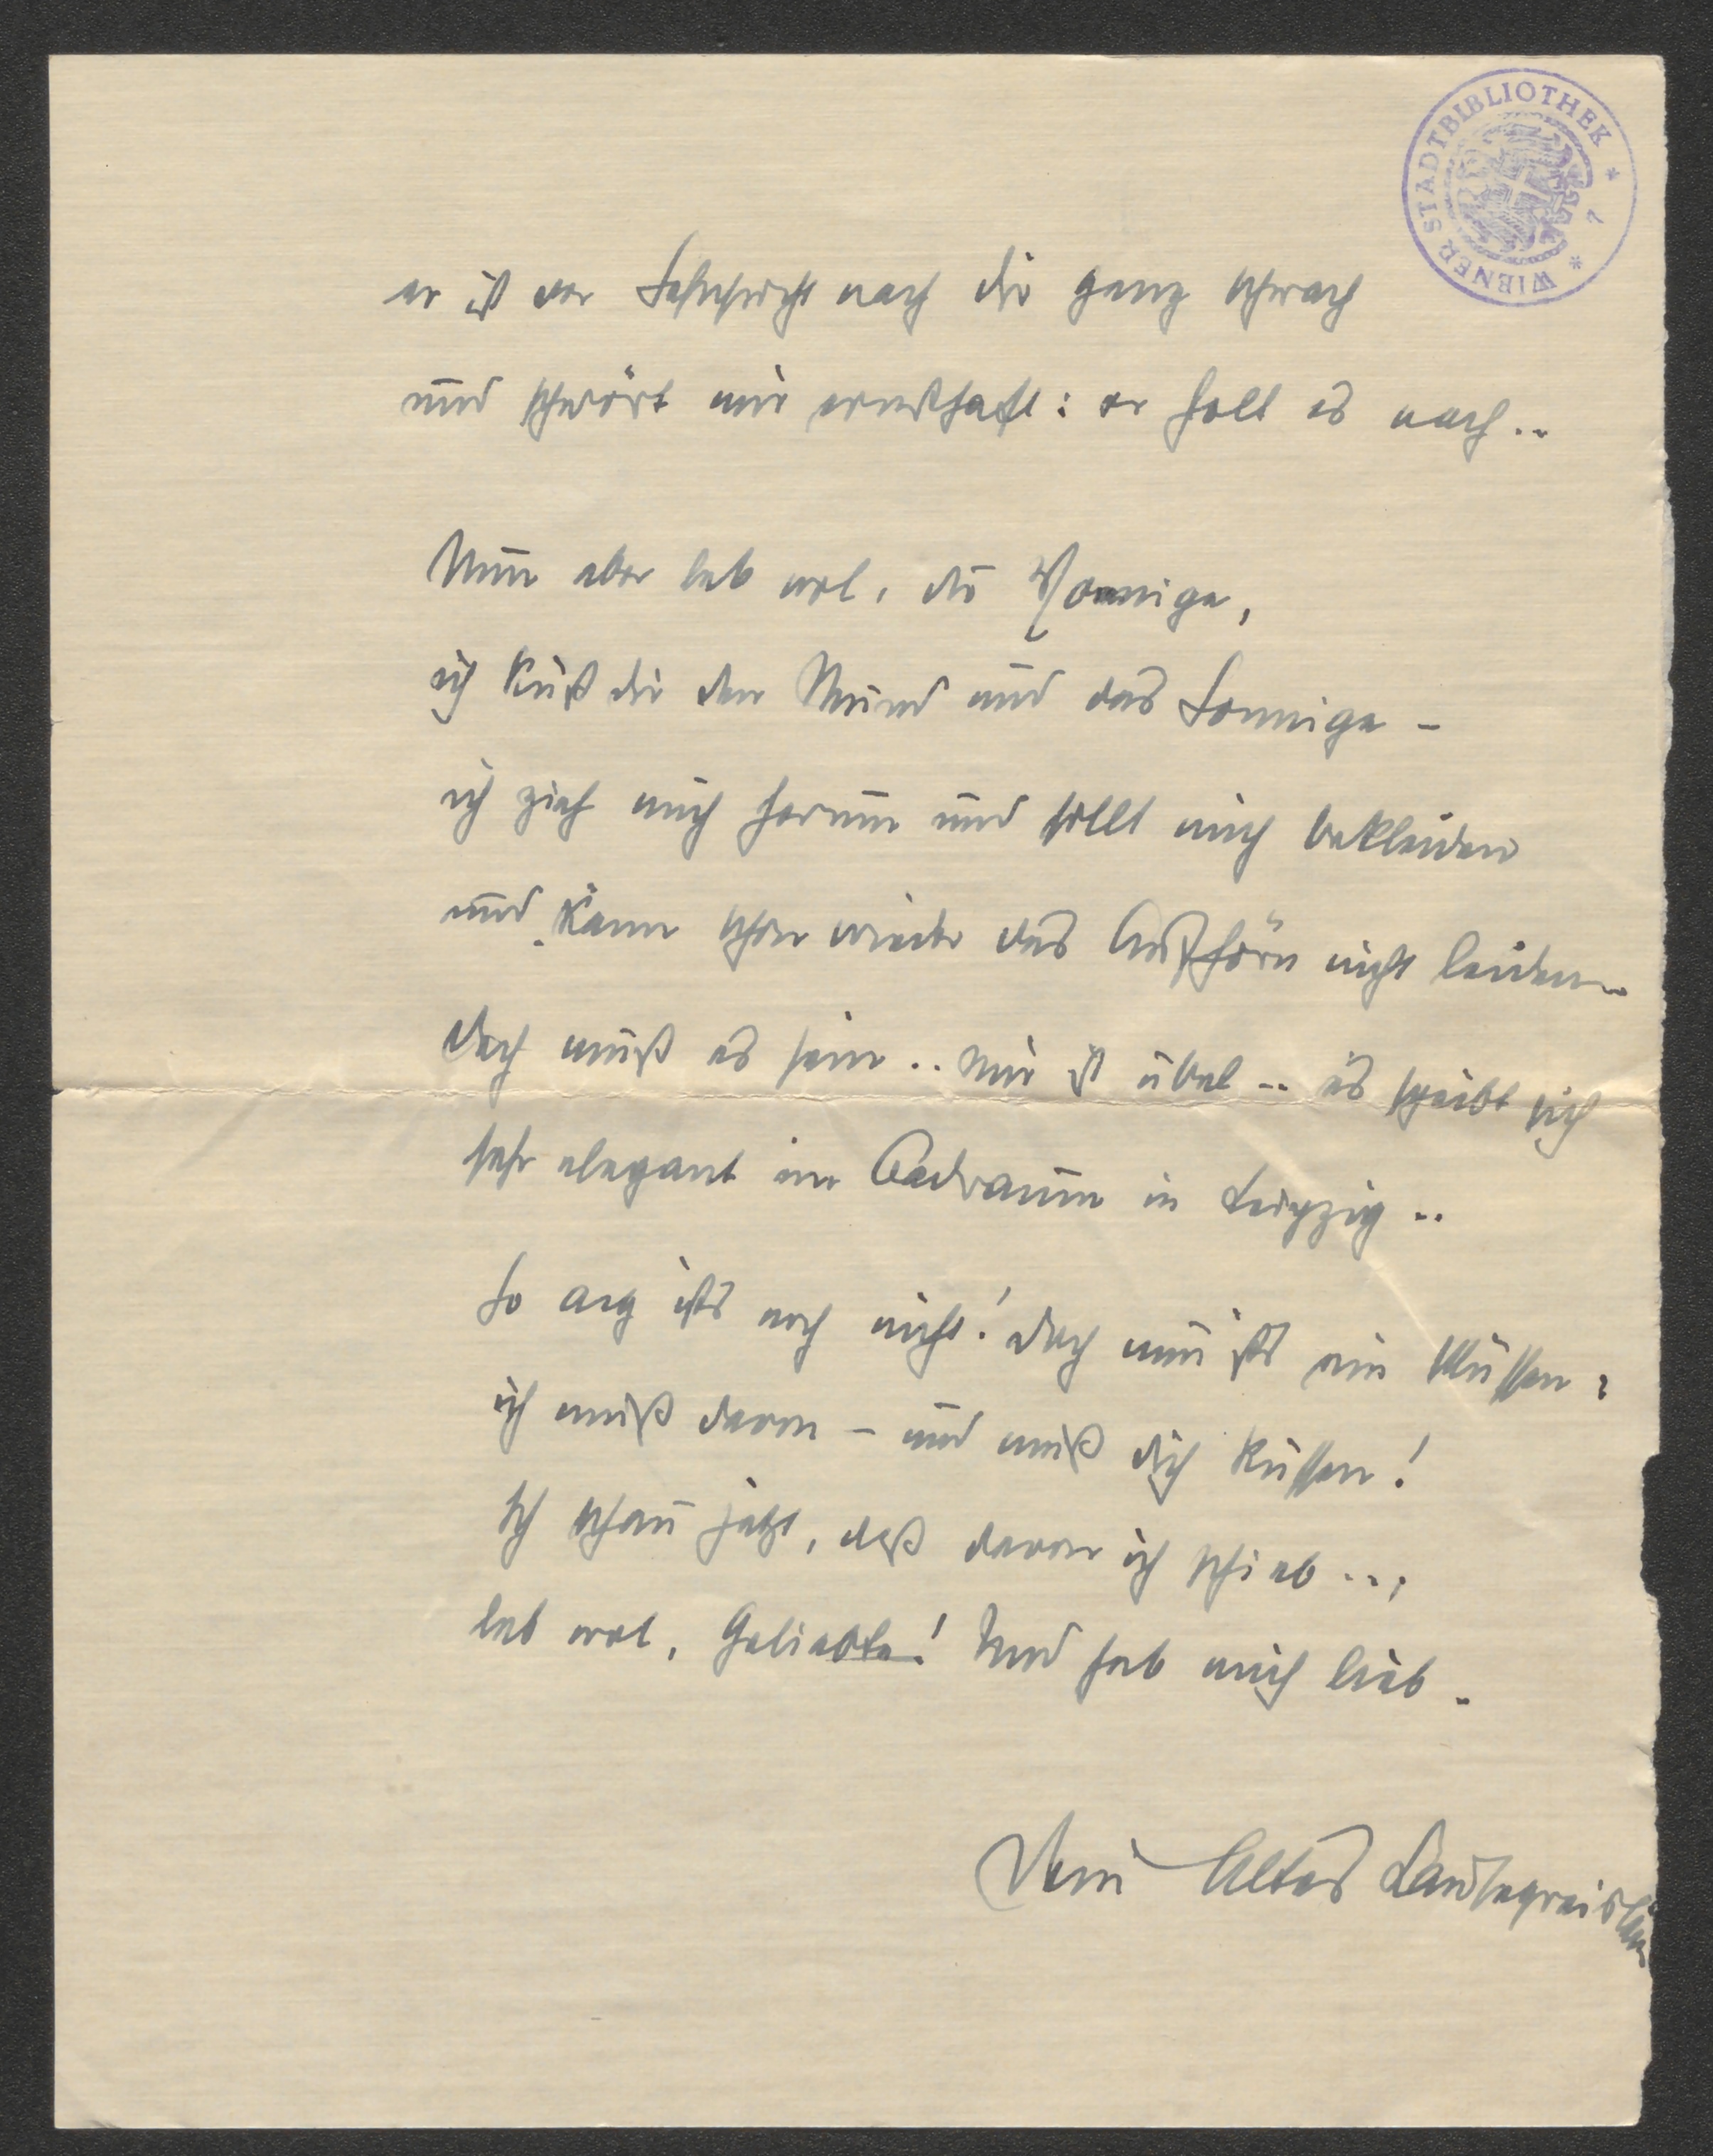 WIENER STADTBIBLIOTHEK * 7 *
er ist vor Sehnsucht nach dir ganz schwach
und schwört mir ernsthaft: er holt es nach..
Nun aber leb wol, du Wonnige,
ich küß dir den Mund und das Sonnige -
ich zieh mich herum und sollt mich bekleiden
und kann schon wieder das Aufhörn nicht leiden..
doch muß es sein.. mir ist übel.. es speibt sich
sehr elegant im Badraum in Leipzig..
So arg ists noch nicht! doch nun ists ein Müssen:
ich muß davon - und muß dich küssen!
Ich schau jetzt, daß davon ich schieb...
leb wol, Geliebte! Und hab mich lieb.
Dein Altes